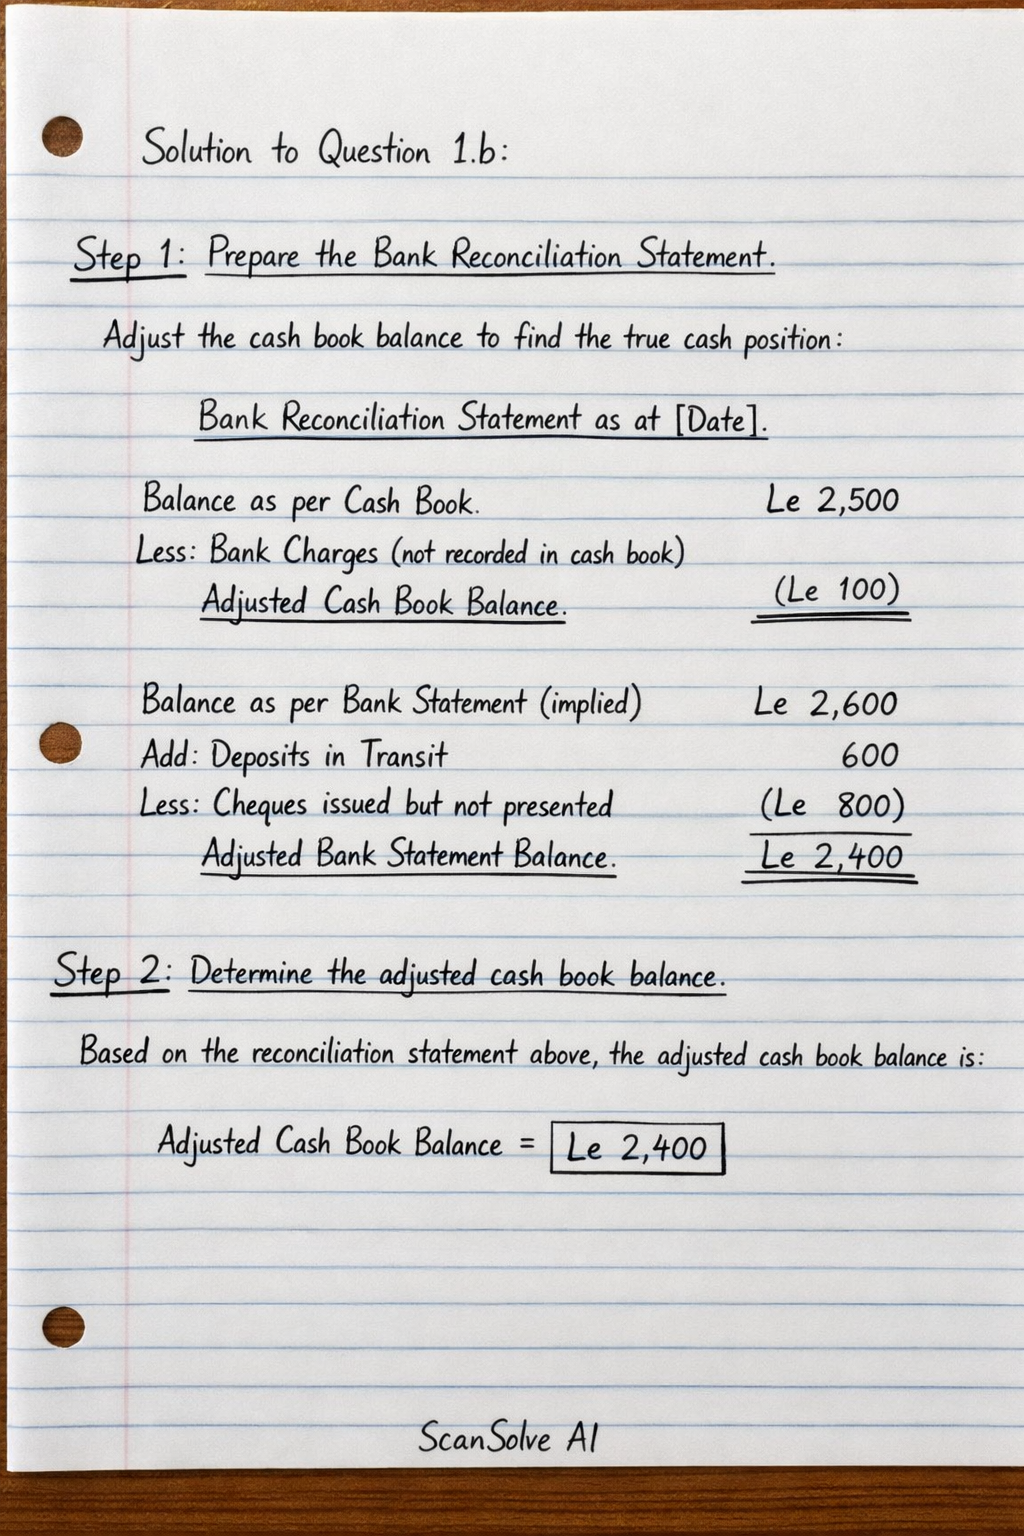 Solution to Question 1.b:
Step 1: Prepare the Bank Reconciliation Statement.
Adjust the cash book balance to find the true cash position:
Bank Reconciliation Statement as at [Date].
Balance as per Cash Book. Le 2,500
Less: Bank Charges (not recorded in cash book)
Adjusted Cash Book Balance. (Le 100)
Balance as per Bank Statement (implied) Le 2,600
Add: Deposits in Transit 600
Less: Cheques issued but not presented (Le 800)
Adjusted Bank Statement Balance. Le 2,400
Step 2: Determine the adjusted cash book balance.
Based on the reconciliation statement above, the adjusted cash book balance is:
Adjusted Cash Book Balance = Le 2,400
ScanSolve AI